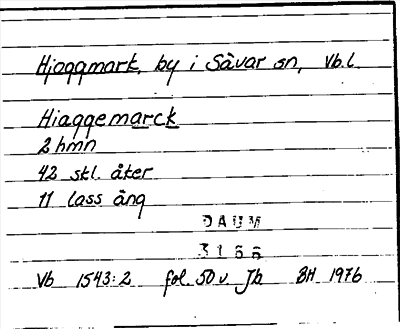 Hjoggmark, by i Sävar sn, Vb.l.
Hiaggemarck
2 hmn
42 skl. åker
11 lass äng
DAUM
3166
Vb 1543:2 fol. 50 v. Jb BH 1976